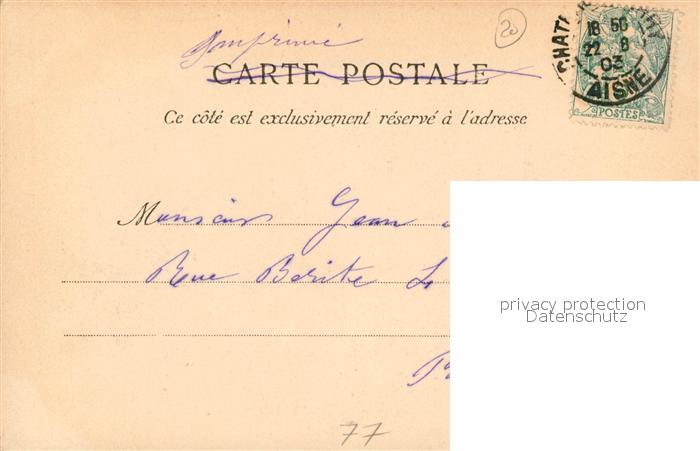 Imprimé
20
CARTE POSTALE
Ce côté est exclusivement réservé à l'adresse
CHAT
18 50
22 8
03
AISNE
POSTES
Monsieur Jean
Rue Berite 4
privacy protection
Datenschutz
77